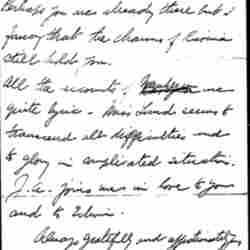 Perhaps you are already there but I
fancy that the charms of
still hold you.
All the accounts of are
quite lyric. Miss Lund seems to
transcend all difficulties and
to glory in complicated situations.
J.A. joins me in love to you
and to Edwin.
Always gratefully and affectionately